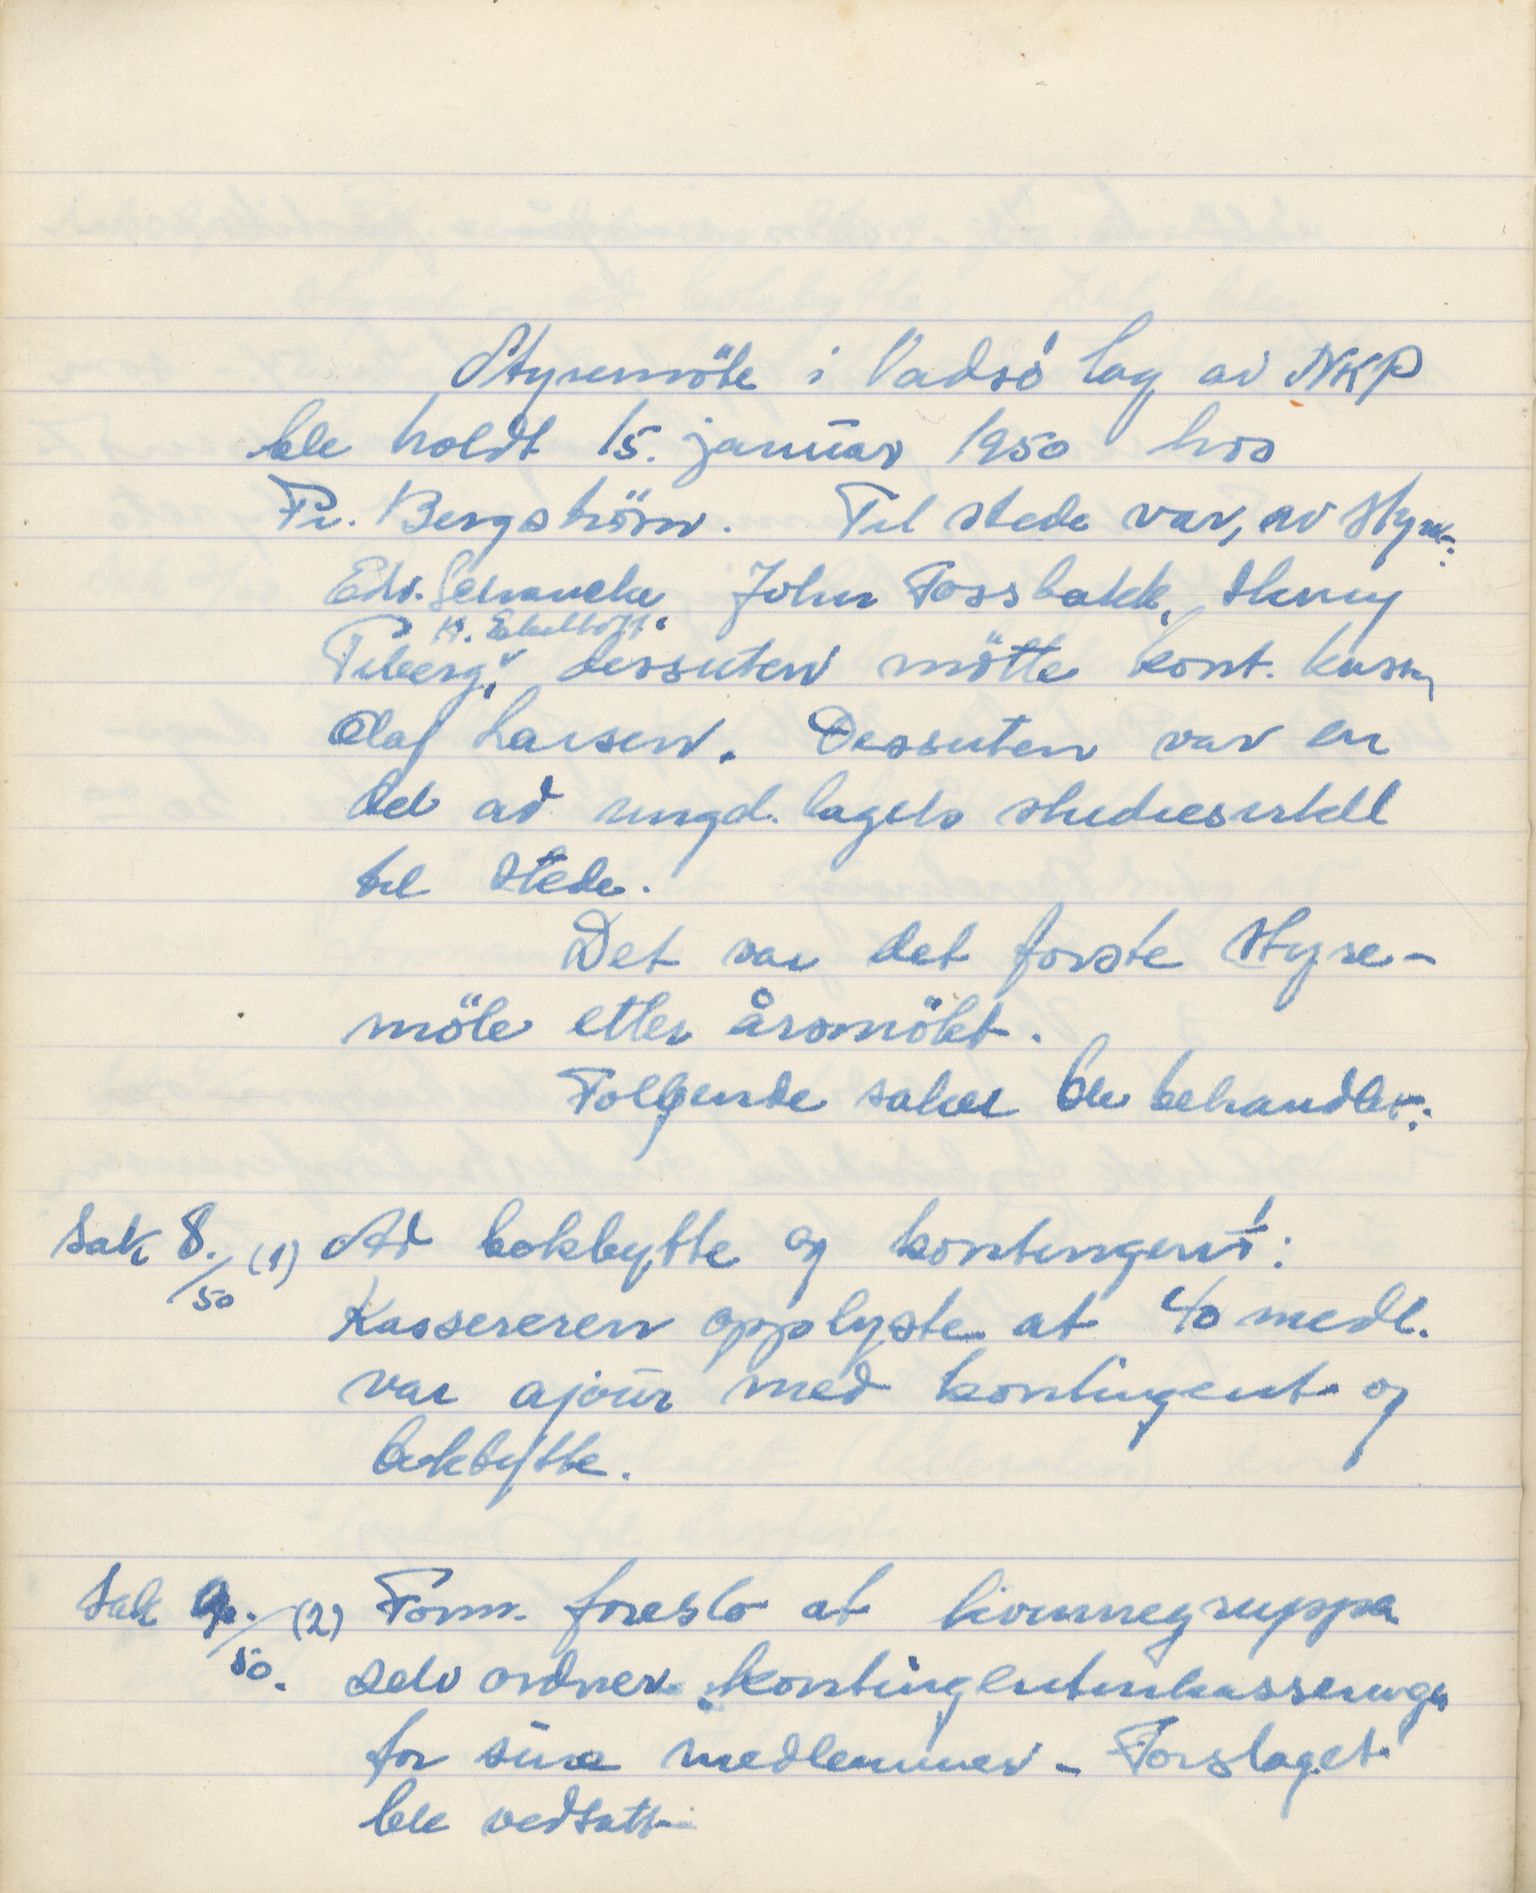 Styremöte i Vadsö lag av NKP
ble holdt 15. januar 1950 hos
Fr. Bergström. Til stede var, av styre:
Edv. John Fossbakk, Henry
H.
Tiberg, dessuten mötte kont. kass.
Olaf Larsen. Dessuten var en
del av ungd. lagets studiesirkel
til stede.
Det var det forste styre-
möte etter årsmötet.
Folgende saker ble behandlet:
Sak 8./50 (1) Ad bokbytte og kontingent:
Kassereren opplyste at 40 medl.
var ajour med kontingent og
bokbytte.
Sak 9./50. (2) Form. foreslo at kvinnegruppa
selv ordner kontingentinkasseringa
for sine medlemmer - Forslaget
ble vedtatt